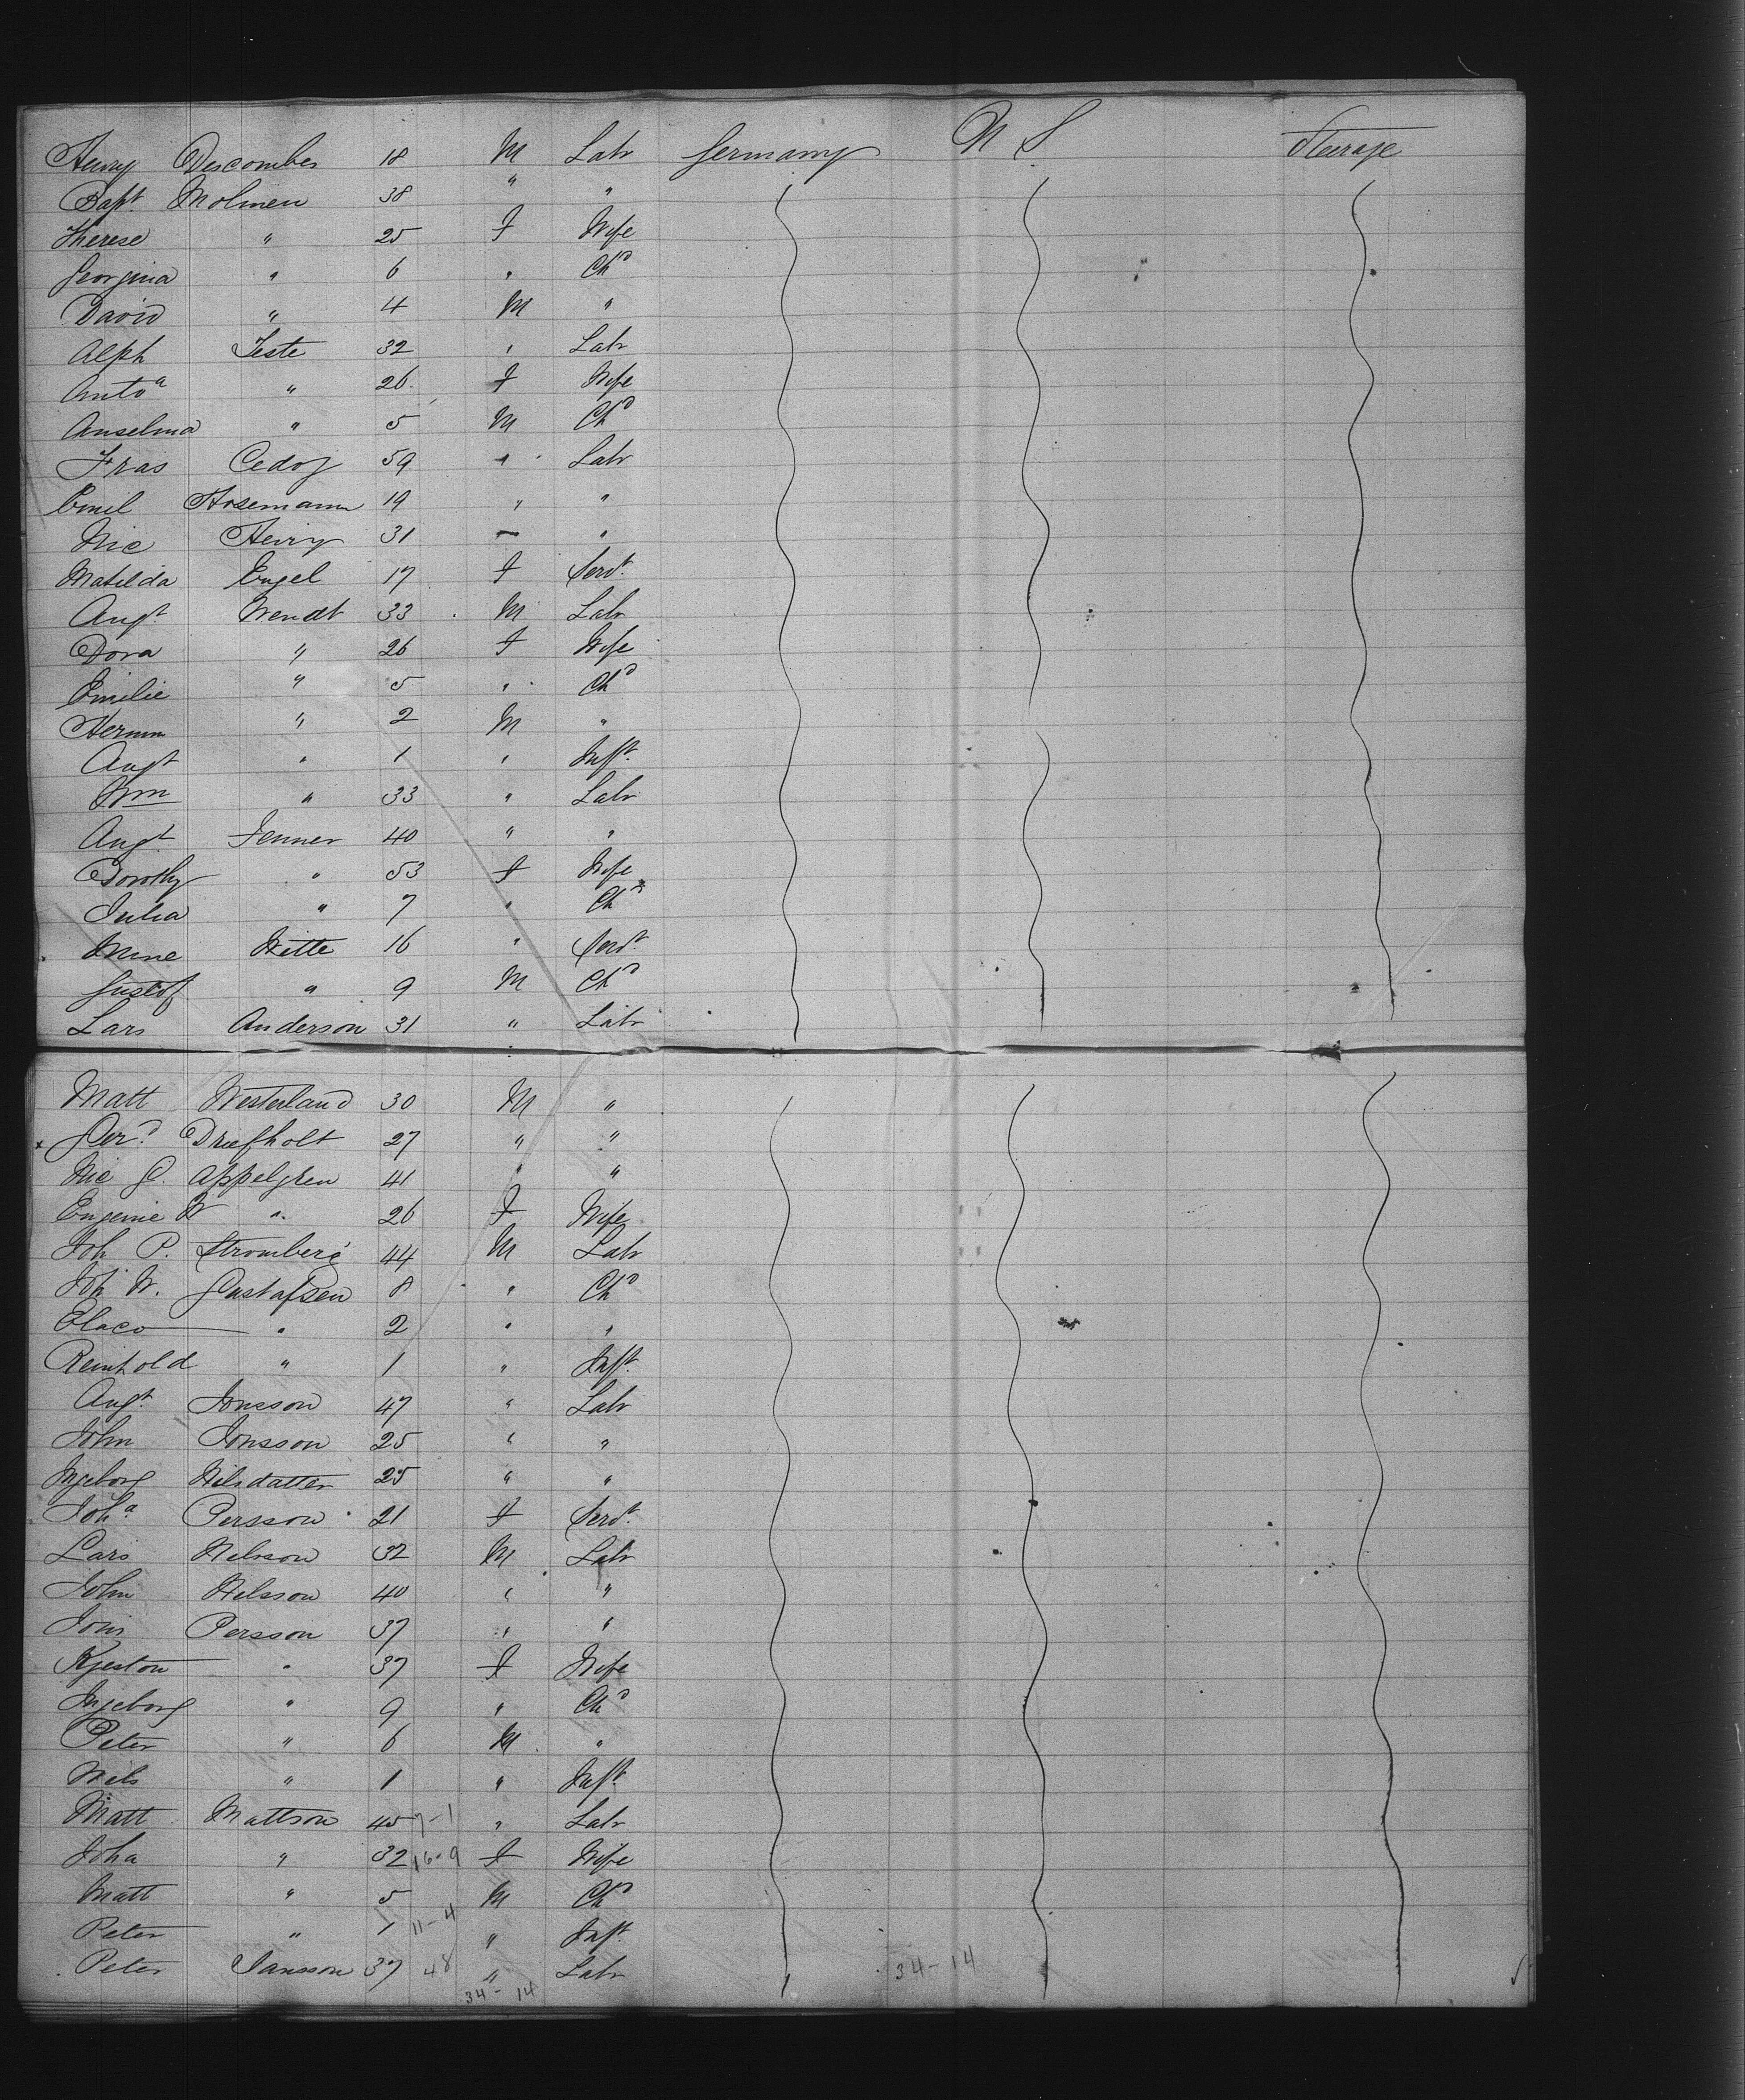 Henry Descombes 18 M Labr Germany U S Steerage
Bapt. Molinen 38 " "
Therese " 25 F Wife
Georgina " 6 " Chd
David " 4 M "
Alph Teste 32 " Labr
Antoa " 26 F Wife
Anselma " 5 M Chd
Fras Cedoz 59 " Labr
Emil Hosemann 19 " "
Nic Henry 31 — "
Matilda Engel 17 F Servt.
Augt Wendt 33 M Labr
Dora " 26 F Wife
Emilie " 5 " Chd
Hermm " 2 M "
Augt " 1 " Inft.
Wm " 33 " Labr
Augt Fenner 40 " "
Dorothy " 53 F Wife
Julia " 7 " Chd
Mine Witte 16 " Servt.
Gustof " 9 M Chd
Lars Anderson 31 " Labr
Matt Westerland 30 M "
x Gerd. Driefholt 27 " "
Nic G. Appelgren 41 " "
Eugenie W " 26 F Wife
Joh P. Stromberg 44 M Labr
Joh W. Gustafsen 8 " Chd
Elaco " 2 " "
Reinhold " 1 " Inft.
Augt. Jonsson 47 " Labr
John Jonsson 25 " "
Ingeborg Nilsdatter 25 " "
Joha Persson 21 F Servt.
Lars Nelsson 32 M Labr
John Nelsson 40 " "
Jons Persson 37 " "
Kjeston " 37 F Wife
Ingeborg " 9 " Chd
Peter " 6 M "
Nels " 1 " Inft.
Matt Mattson 45 7-1 " Labr
Joha " 32 16-9 F Wife
Matt " 5 M Chd
Peter " 1 11-4 " Inft.
Peter Jansson 37 48 " Labr 34-14
34-14